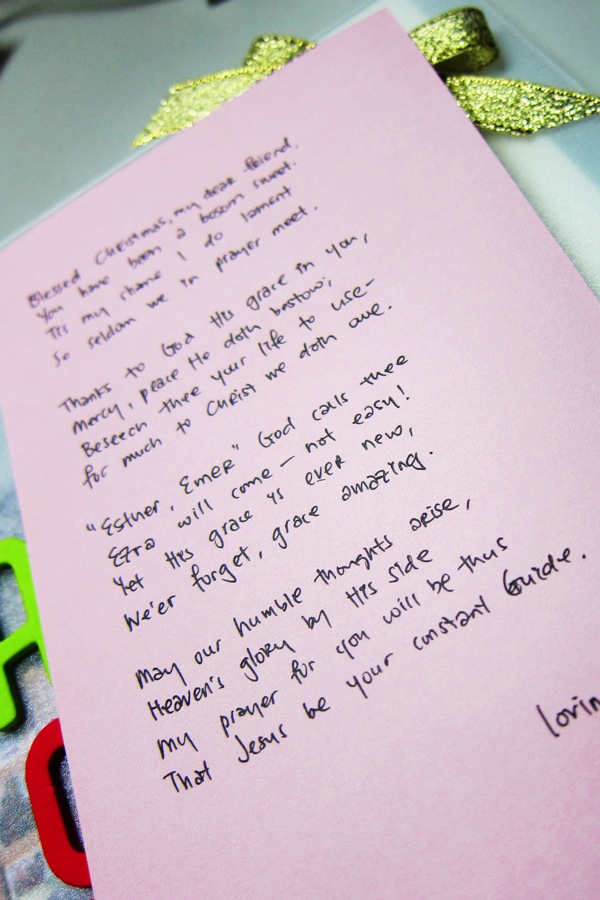 Blessed Christmas, my dear friend.
You have been a bosom sweet.
Tis my shame I do lament
So seldom we in prayer meet.
Thanks to God His grace in you,
Mercy, peace He doth bestow;
Beseech thee your life to use-
for much to Christ we doth owe.
"Esther, Emer" God calls thee
Ezra will come - not easy!
Yet His grace is ever new,
We'er forget, grace amazing.
May our humble thoughts arise,
Heaven's glory by His side
My prayer for you will be thus
That Jesus be your constant Guide.
lovin